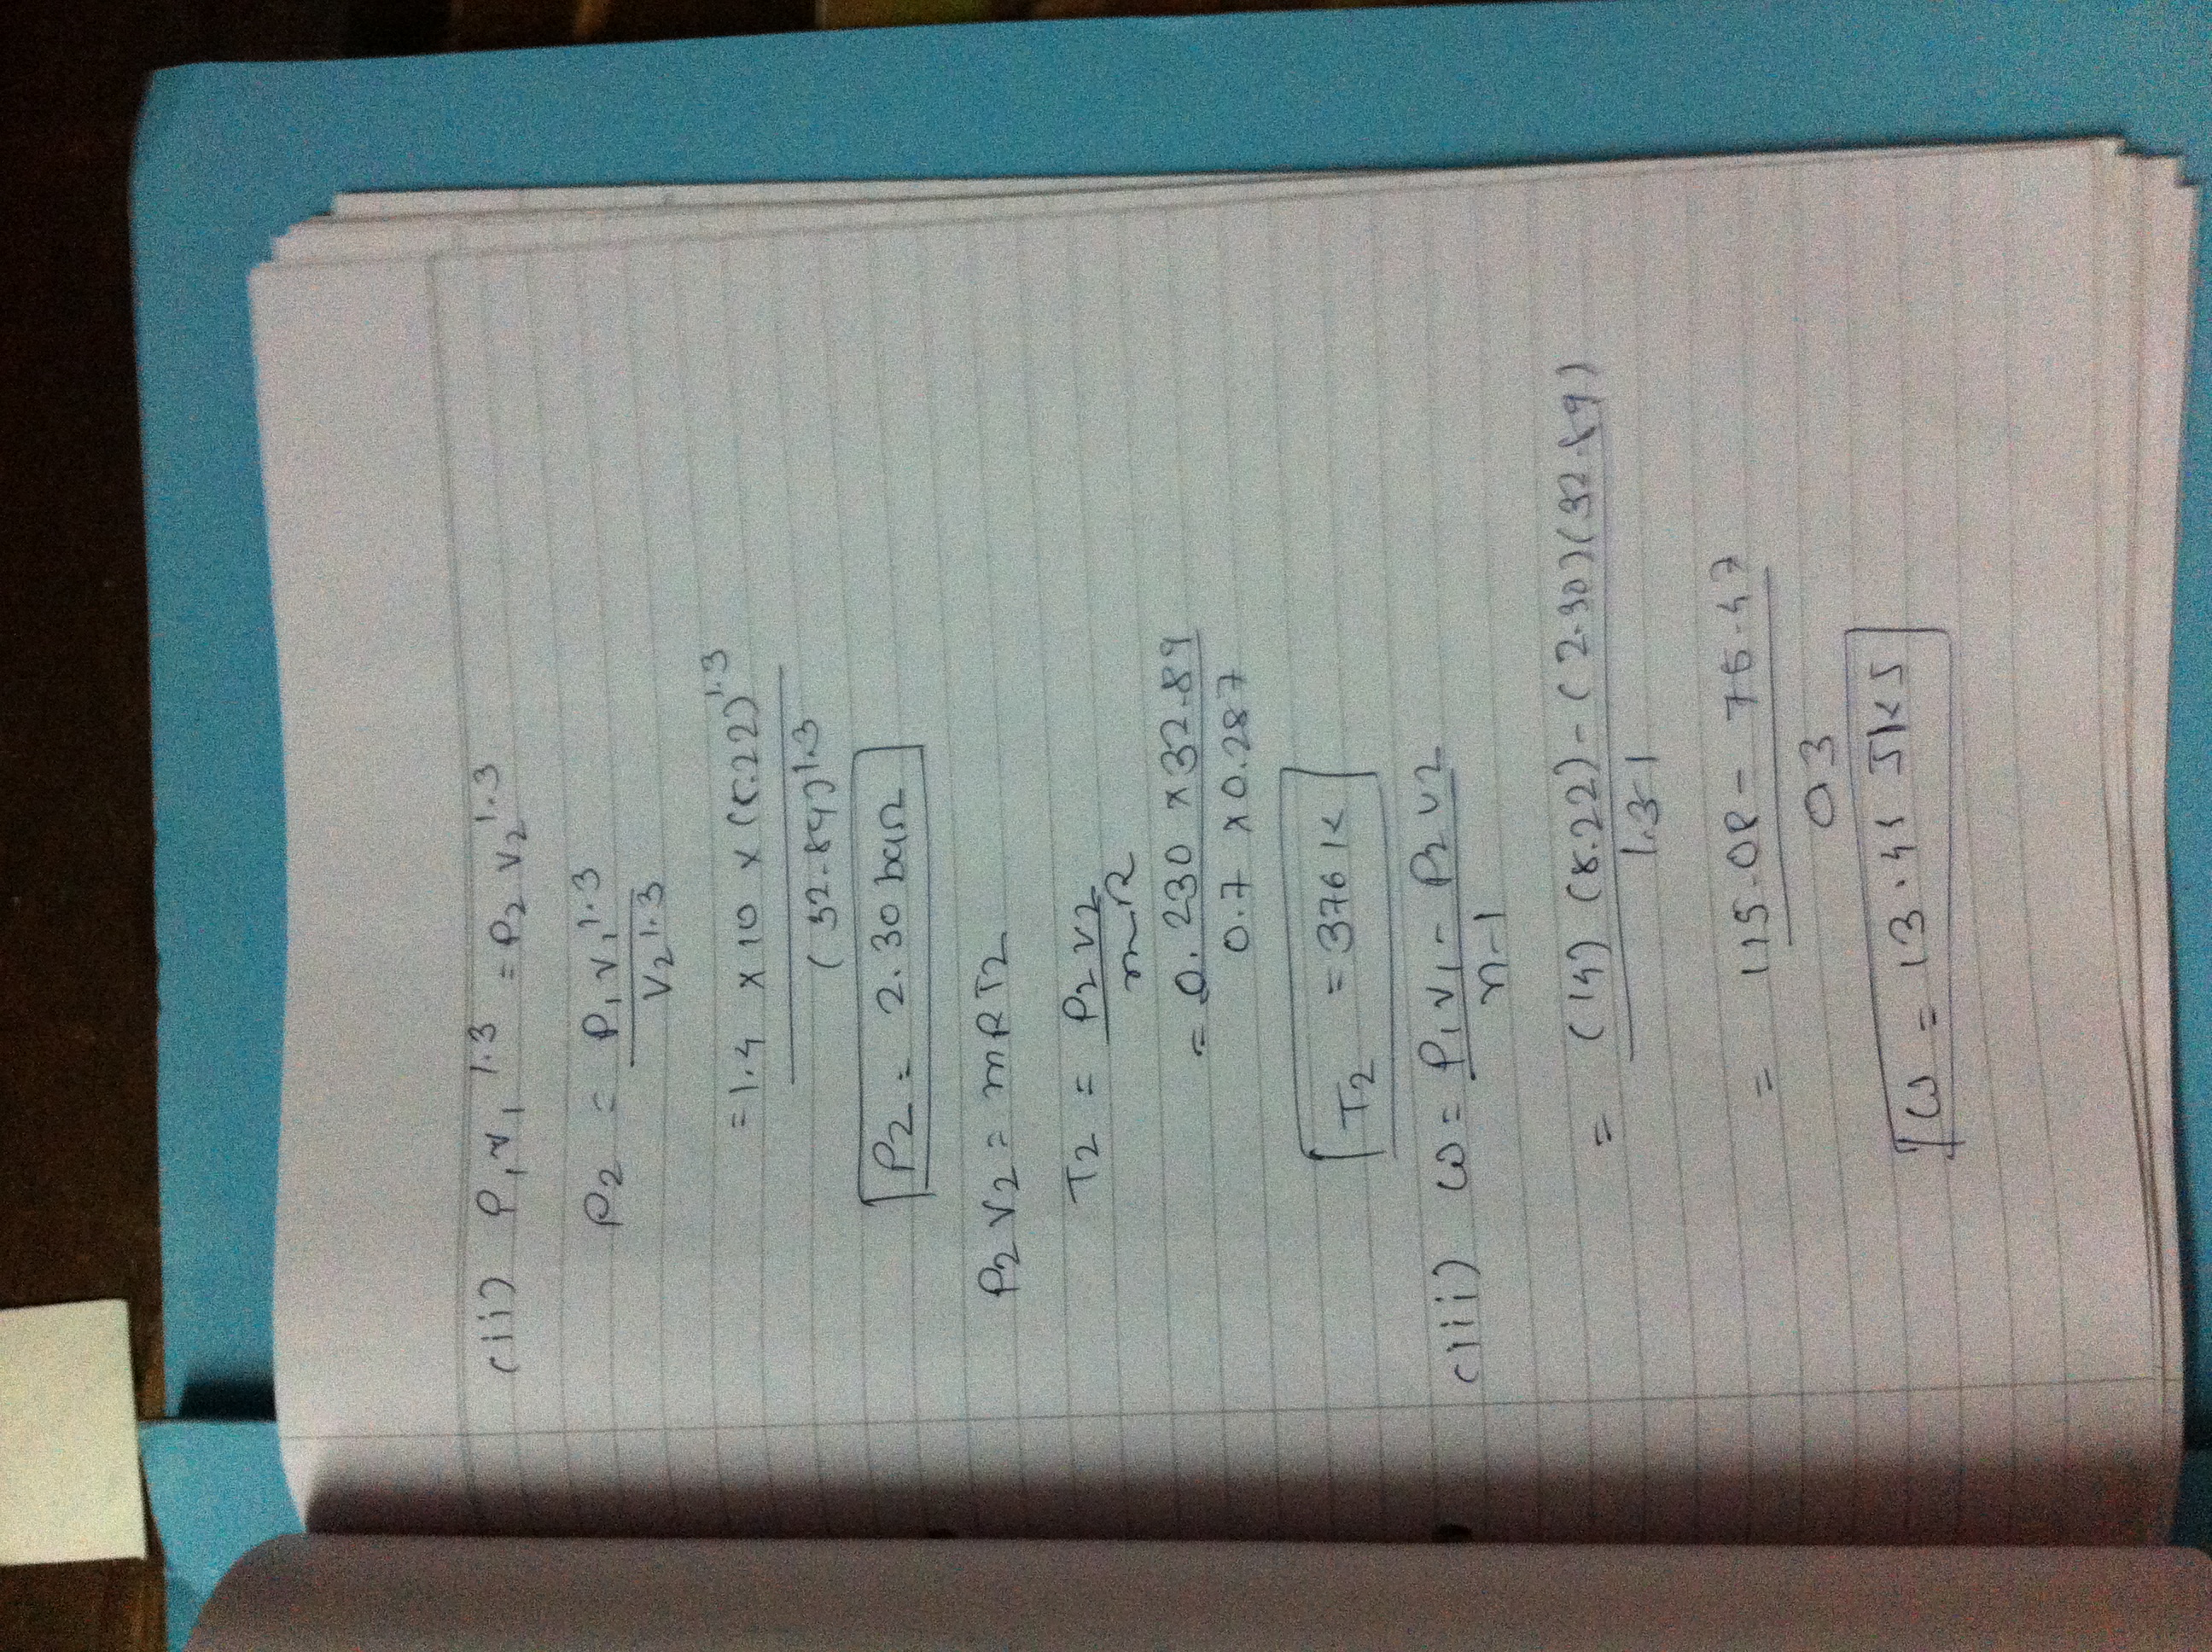 (ii) P₁v₁^1.3 = P₂ v₂^1.3
P₂ = P₁v₁^1.3 / V₂^1.3
= 1.4 x 10 x (8.22)^1.3 / (32.89)^1.3
P₂ = 2.30 bar
P₂ V₂ = mRT₂
T₂ = P₂ V₂ / mR
= 0.230 x 32.89 / 0.7 x 0.287
T₂ = 376 K
(iii) W = P₁v₁ - P₂v₂ / n-1
= (14) (8.22) - (2.30)(32.89) / 1.3-1
= 115.08 - 75.47 / 0.3
W = 13.41